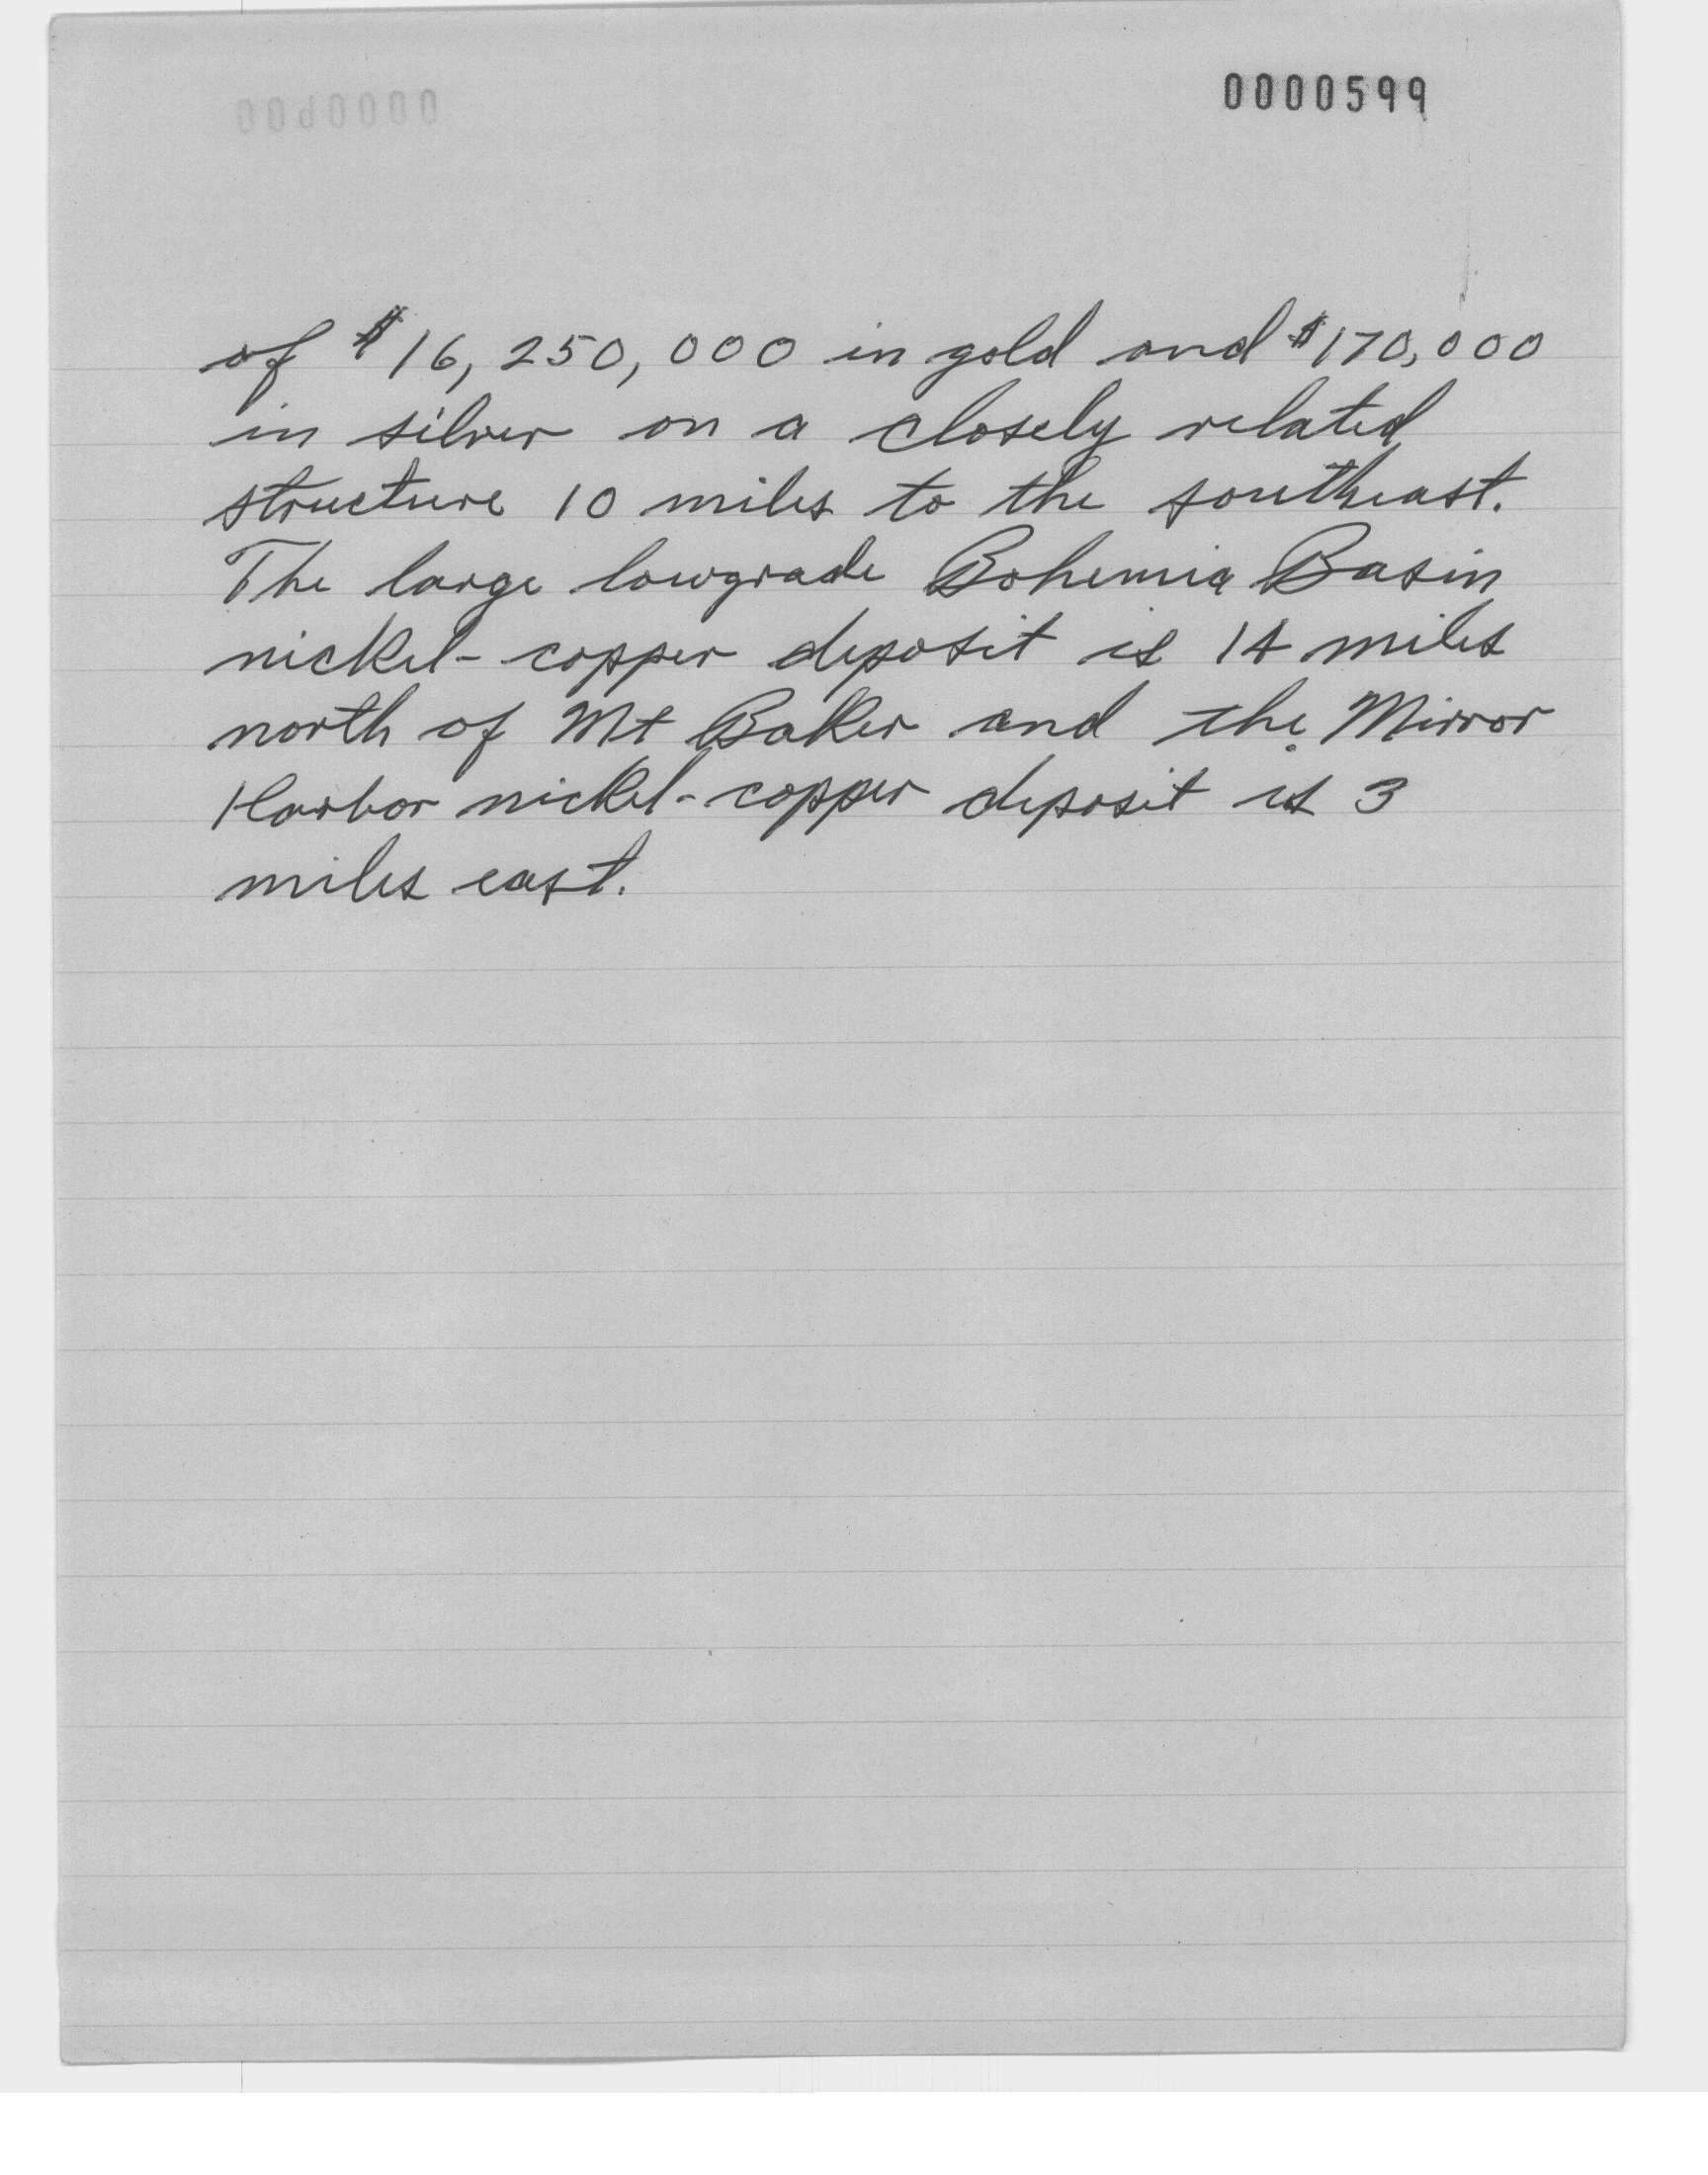 0000599
of $16,250,000 in gold and $170,000
in silver on a closely related
structure 10 miles to the southeast.
The large lowgrade Bohemia Basin
nickel-copper deposit is 14 miles
north of Mt Baker and the Mirror
Harbor nickel-copper deposit is 3
miles east.